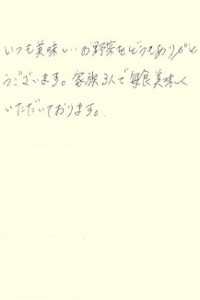 いつも美味しいお野菜をどうもありがと
うございます。家族3人で毎食美味しく
いただいております。